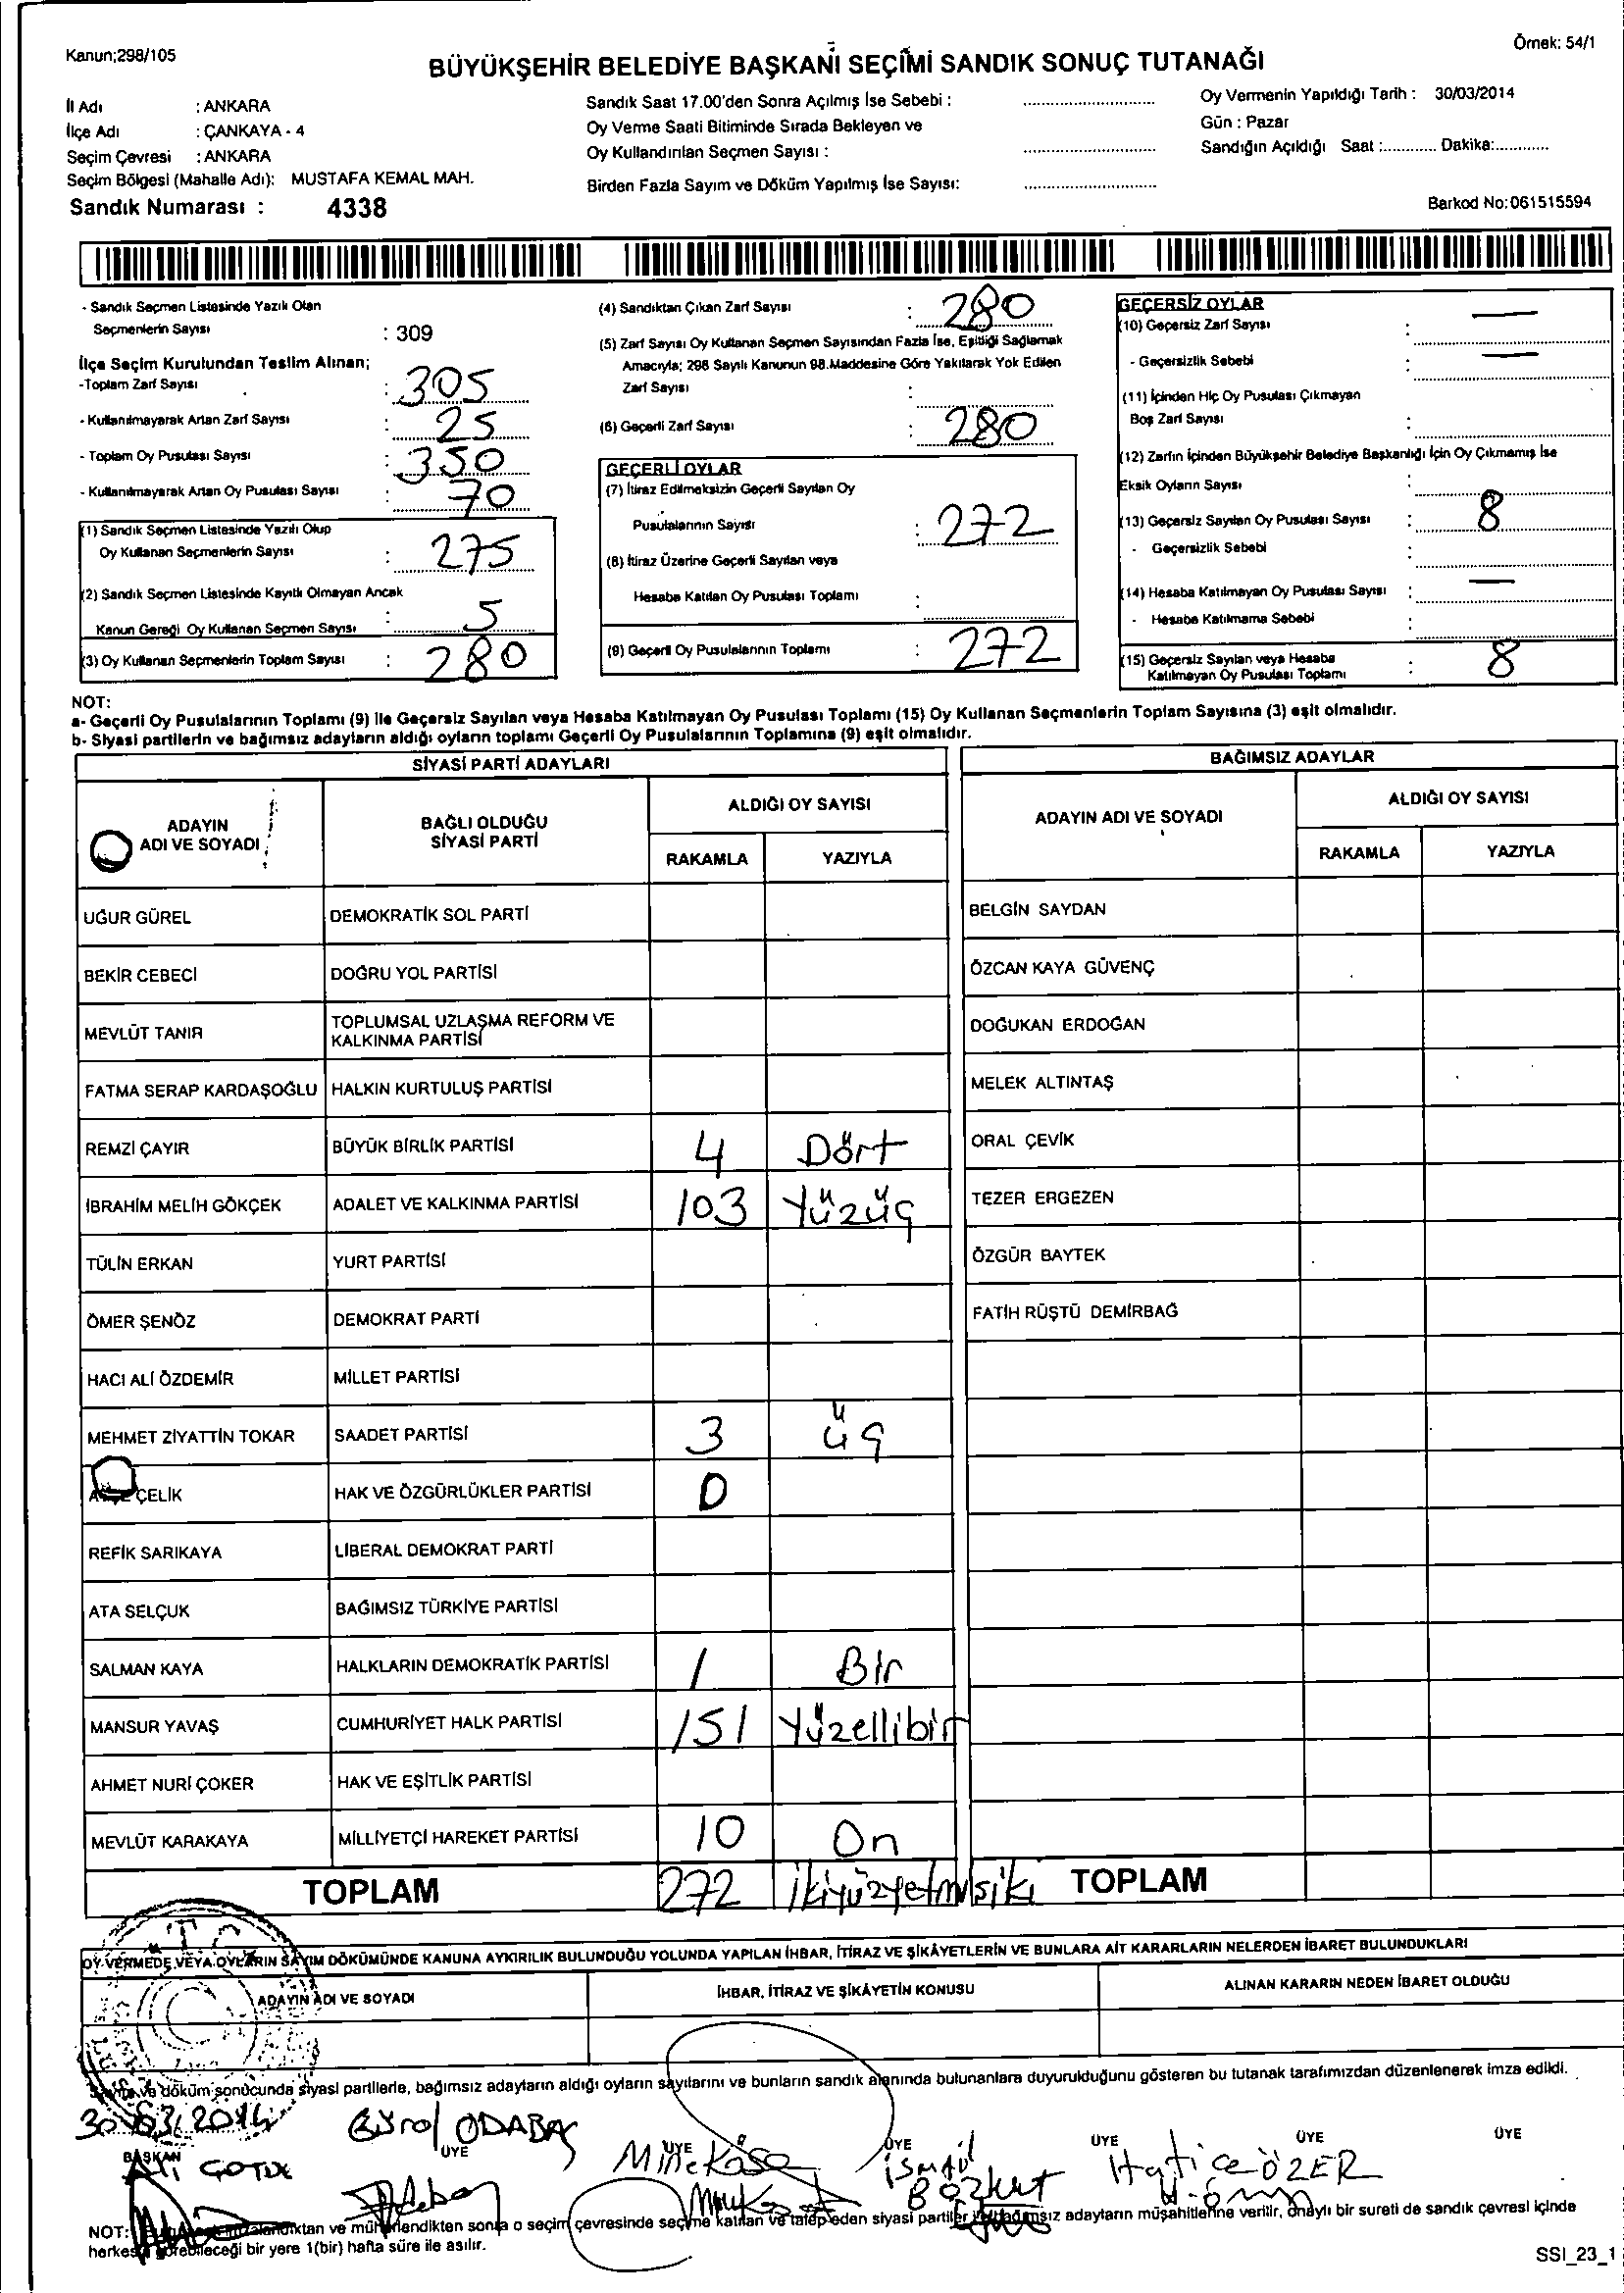 Kanun;298/105
Örnek: 54/1
BÜYÜKŞEHİR BELEDİYE BAŞKANI SEÇİMİ SANDIK SONUÇ TUTANAĞI
İl Adı : ANKARA
İlçe Adı : ÇANKAYA - 4
Seçim Çevresi : ANKARA
Seçim Bölgesi (Mahalle Adı): MUSTAFA KEMAL MAH.
Sandık Numarası : 4338
Sandık Saat 17.00'den Sonra Açılmış İse Sebebi :
Oy Verme Saati Bitiminde Sırada Bekleyen ve
Oy Kullandırılan Seçmen Sayısı :
Birden Fazla Sayım ve Döküm Yapılmış İse Sayısı:
Oy Vermenin Yapıldığı Tarih : 30/03/2014
Gün : Pazar
Sandığın Açıldığı Saat :............ Dakika:............
Barkod No:061515594
- Sandık Seçmen Listesinde Yazılı Olan
Seçmenlerin Sayısı : 309
İlçe Seçim Kurulundan Teslim Alınan;
-Toplam Zarf Sayısı : 305
- Kullanılmayarak Artan Zarf Sayısı : 25
- Toplam Oy Pusulası Sayısı : 350
- Kullanılmayarak Artan Oy Pusulası Sayısı : 70
(1) Sandık Seçmen Listesinde Yazılı Olup
Oy Kullanan Seçmenlerin Sayısı : 275
(2) Sandık Seçmen Listesinde Kayıtlı Olmayan Ancak
Kanun Gereği Oy Kullanan Seçmen Sayısı : 5
(3) Oy Kullanan Seçmenlerin Toplam Sayısı : 280
(4) Sandıktan Çıkan Zarf Sayısı : 280
(5) Zarf Sayısı Oy Kullanan Seçmen Sayısından Fazla İse, Eşitliği Sağlamak
Amacıyla; 298 Sayılı Kanunun 98.Maddesine Göre Yakılarak Yok Edilen
Zarf Sayısı :
(6) Geçerli Zarf Sayısı : 280
GEÇERLİ OYLAR
(7) İtiraz Edilmeksizin Geçerli Sayılan Oy
Pusulalarının Sayısı : 272
(8) İtiraz Üzerine Geçerli Sayılan veya
Hesaba Katılan Oy Pusulası Toplamı :
(9) Geçerli Oy Pusulalarının Toplamı : 272
GEÇERSİZ OYLAR
(10) Geçersiz Zarf Sayısı : —
- Geçersizlik Sebebi : —
(11) İçinden Hiç Oy Pusulası Çıkmayan
Boş Zarf Sayısı :
(12) Zarfın İçinden Büyükşehir Belediye Başkanlığı İçin Oy Çıkmamış İse
Eksik Oyların Sayısı :
(13) Geçersiz Sayılan Oy Pusulası Sayısı : 8
- Geçersizlik Sebebi :
(14) Hesaba Katılmayan Oy Pusulası Sayısı : —
- Hesaba Katılmama Sebebi :
(15) Geçersiz Sayılan veya Hesaba
Katılmayan Oy Pusulası Toplamı : 8
NOT:
a- Geçerli Oy Pusulalarının Toplamı (9) ile Geçersiz Sayılan veya Hesaba Katılmayan Oy Pusulası Toplamı (15) Oy Kullanan Seçmenlerin Toplam Sayısına (3) eşit olmalıdır.
b- Siyasi partilerin ve bağımsız adayların aldığı oyların toplamı Geçerli Oy Pusulalarının Toplamına (9) eşit olmalıdır.
SİYASİ PARTİ ADAYLARI
ADAYIN ADI VE SOYADI
BAĞLI OLDUĞU SİYASİ PARTİ
ALDIĞI OY SAYISI
RAKAMLA YAZIYLA
UĞUR GÜREL DEMOKRATİK SOL PARTİ
BEKİR CEBECİ DOĞRU YOL PARTİSİ
MEVLÜT TANIR TOPLUMSAL UZLAŞMA REFORM VE KALKINMA PARTİSİ
FATMA SERAP KARDAŞOĞLU HALKIN KURTULUŞ PARTİSİ
REMZİ ÇAYIR BÜYÜK BİRLİK PARTİSİ 4 Dört
İBRAHİM MELİH GÖKÇEK ADALET VE KALKINMA PARTİSİ 103 Yüzüç
TÜLİN ERKAN YURT PARTİSİ
ÖMER ŞENÖZ DEMOKRAT PARTİ
HACI ALİ ÖZDEMİR MİLLET PARTİSİ
MEHMET ZİYATTİN TOKAR SAADET PARTİSİ 3 Üç
ÇELİK HAK VE ÖZGÜRLÜKLER PARTİSİ 0
REFİK SARIKAYA LİBERAL DEMOKRAT PARTİ
ATA SELÇUK BAĞIMSIZ TÜRKİYE PARTİSİ
SALMAN KAYA HALKLARIN DEMOKRATİK PARTİSİ 1 Bir
MANSUR YAVAŞ CUMHURİYET HALK PARTİSİ 151 Yüzellibir
AHMET NURİ ÇOKER HAK VE EŞİTLİK PARTİSİ
MEVLÜT KARAKAYA MİLLİYETÇİ HAREKET PARTİSİ 10 On
TOPLAM 272 ikiyüzyetmişiki
BAĞIMSIZ ADAYLAR
ADAYIN ADI VE SOYADI
ALDIĞI OY SAYISI
RAKAMLA YAZIYLA
BELGİN SAYDAN
ÖZCAN KAYA GÜVENÇ
DOĞUKAN ERDOĞAN
MELEK ALTINTAŞ
ORAL ÇEVİK
TEZER ERGEZEN
ÖZGÜR BAYTEK
FATİH RÜŞTÜ DEMİRBAĞ
TOPLAM
OY VERMEDE VEYA OYLARIN SAYIM DÖKÜMÜNDE KANUNA AYKIRILIK BULUNDUĞU YOLUNDA YAPILAN İHBAR, İTİRAZ VE ŞİKÂYETLERİN VE BUNLARA AİT KARARLARIN NELERDEN İBARET BULUNDUKLARI
ADAYIN ADI VE SOYADI
İHBAR, İTİRAZ VE ŞİKÂYETİN KONUSU
ALINAN KARARIN NEDEN İBARET OLDUĞU
Sayım ve döküm sonucunda siyasi partilerle, bağımsız adayların aldığı oyların sayılarını ve bunların sandık alanında bulunanlara duyurulduğunu gösteren bu tutanak tarafımızdan düzenlenerek imza edildi.
30/03/2014
BAŞKAN ÜYE ÜYE ÜYE ÜYE ÜYE ÜYE
Gürol ODABAŞ
Mine Köse
İSMAİL Bozkurt
Hatice ÖZER
NOT: ve mühürlendikten sonra o seçim çevresinde seçime katılan ve talep eden siyasi partiler bağımsız adayların müşahitlerine verilir, onaylı bir sureti de sandık çevresi içinde
herkesin görebileceği bir yere 1(bir) hafta süre ile asılır.
SSI_23_1